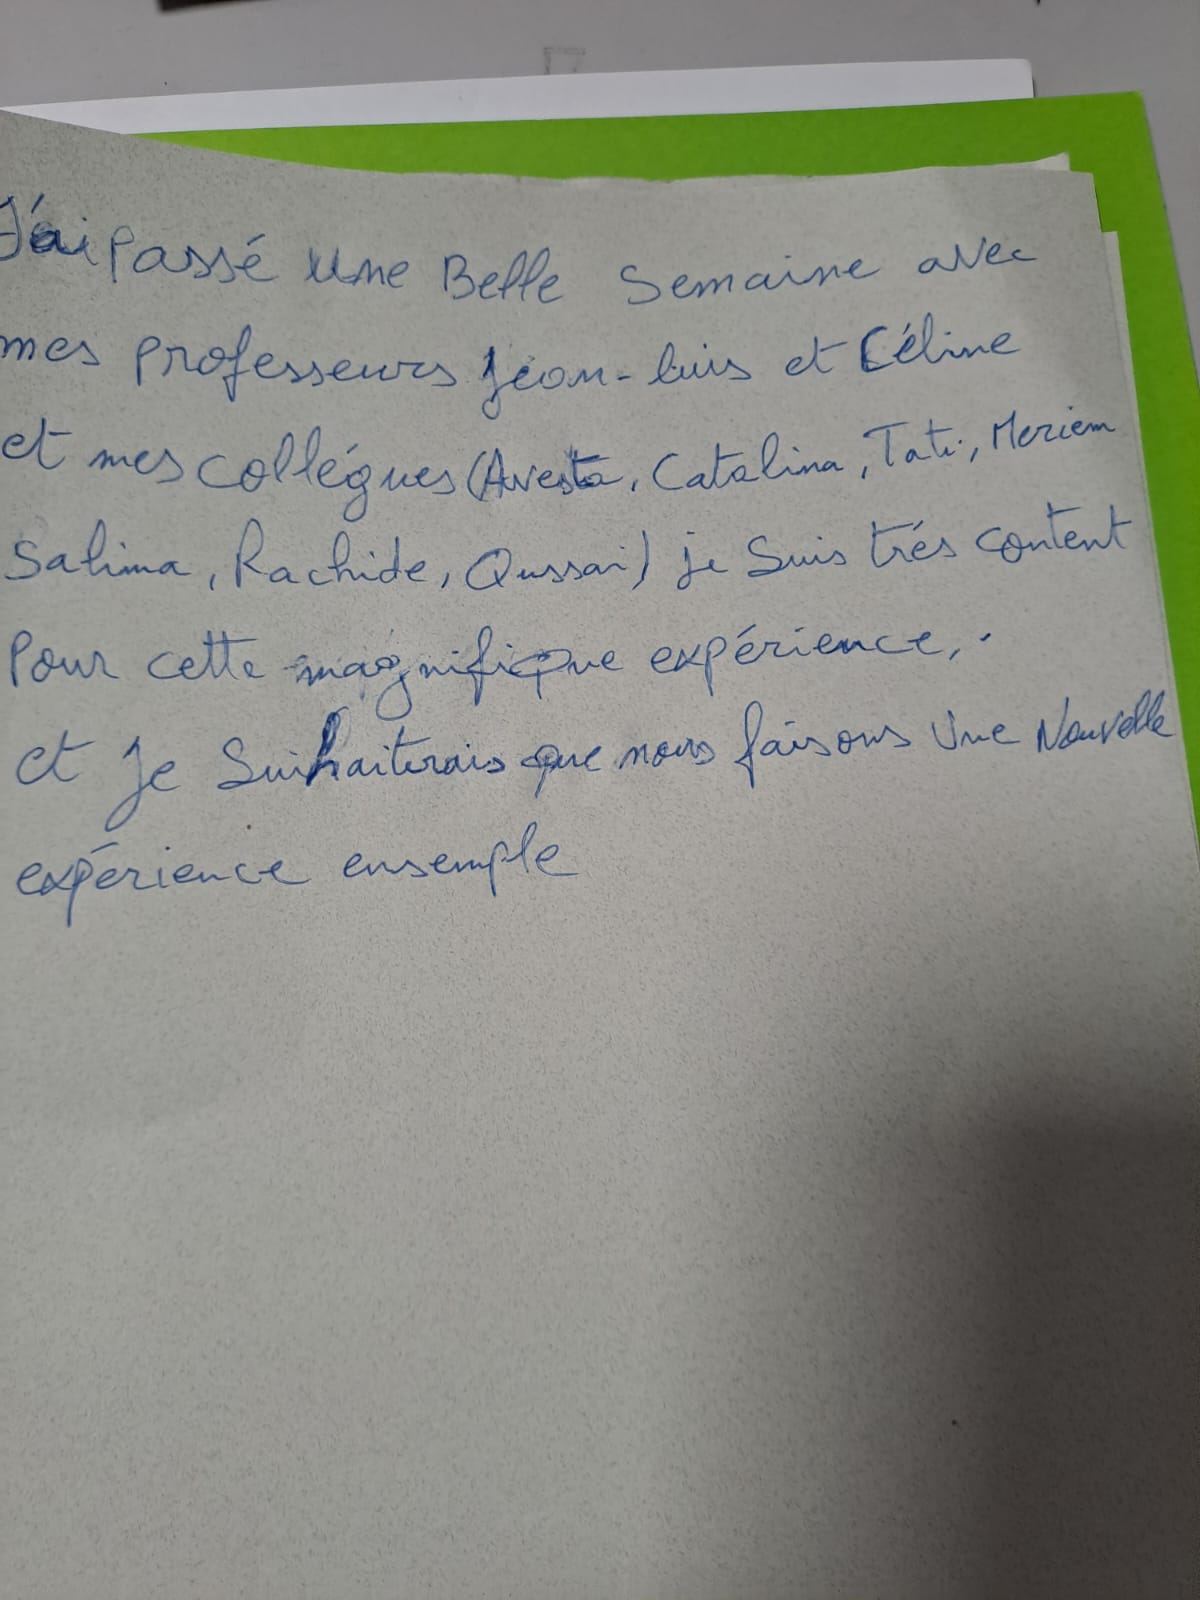 J'ai passé Une Belle Semaine avec
mes professeurs Jéan-luis et Céline
et mes collégues (Avesta, Catalina, Tati, Meriem
Salima, Rachide, Qussai) je Suis trés content
Pour cette magnifique expérience,.
et Je Suihaiterais que nous faisons Une Nouvelle
expérience ensemple